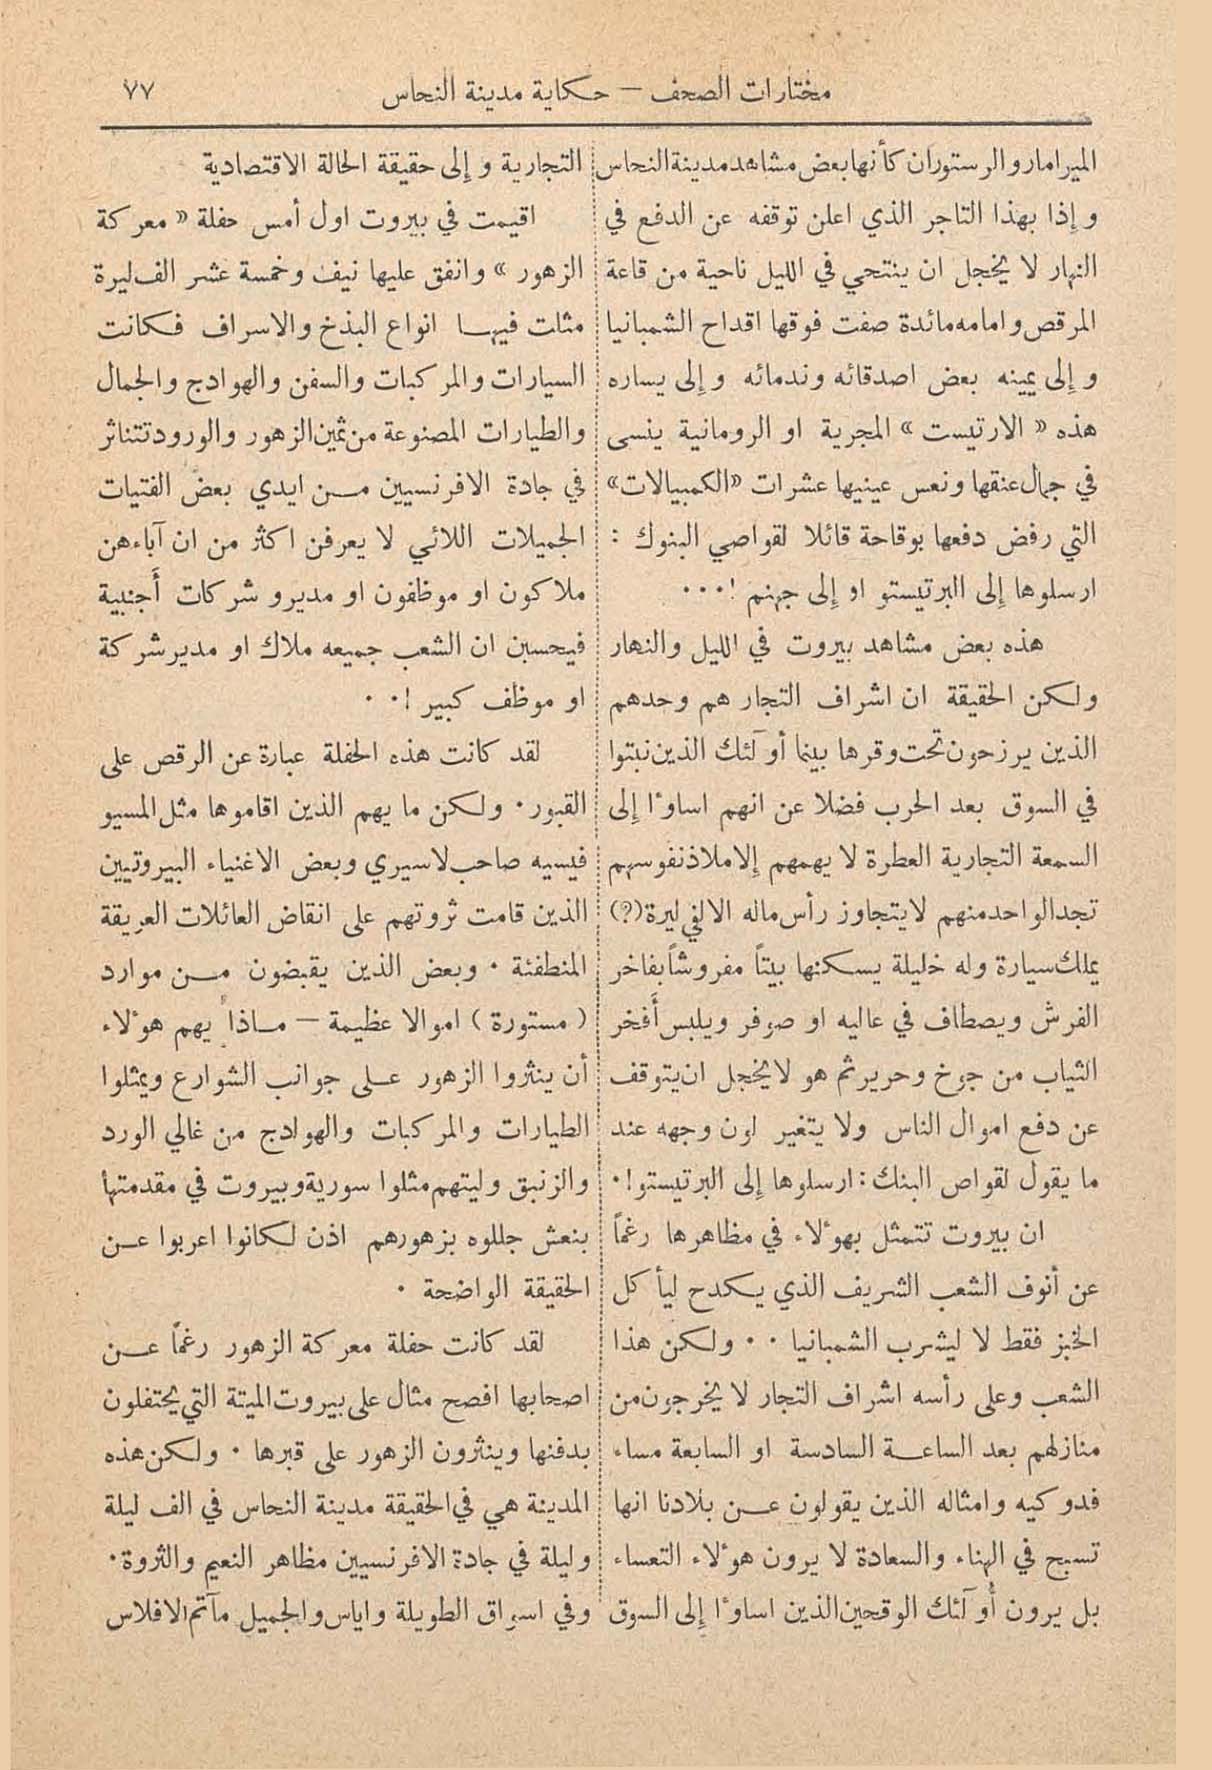 مختارات الصحف — حكاية مدينة النحاس ٧٧
الميرامار والرستوران كأنها بعض مشاهد مدينة النحاس
وإذا بهذا التاجر الذي اعلن توقفه عن الدفع في
النهار لا يخجل ان ينتحي في الليل ناحية من قاعة
المرقص وامامه مائدة صفت فوقها اقداح الشمبانيا
وإلى يمينه بعض اصدقائه وندمائه وإلى يساره
هذه « الارتيست » المجرية او الرومانية ينسى
في جمال عنقها ونعس عينيها عشرات «الكمبيالات»
التي رفض دفعها بوقاحة قائلا لقواصي البنوك :
ارسلوها إلى البرتيستو او إلى جهنم !···
هذه بعض مشاهد بيروت في الليل والنهار
ولكن الحقيقة ان اشراف التجار هم وحدهم
الذين يرزحون تحت وقرها بينما أولآئك الذين نبتوا
في السوق بعد الحرب فضلا عن انهم اساوءا إلى
السمعة التجارية العطرة لا يهمهم إلا ملاذ نفوسهم
تجد الواحد منهم لا يتجاوز رأس ماله الالفي ليرة(؟)
يملك سيارة وله خليلة يسكنها بيتاً مفروشاً بفاخر
الفرش ويصطاف في عاليه او صوفر ويلبس أفخر
الثياب من جوخ وحرير ثم هو لا يخجل ان يتوقف
عن دفع اموال الناس ولا يتغير لون وجهه عند
ما يقول لقواص البنك : ارسلوها إلى البرتيستو!·
ان بيروت تتمثل بهوءلاء في مظاهرها رغماً
عن أنوف الشعب الشريف الذي يكدح ليأكل
الخبز فقط لا ليشرب الشمبانيا · · ولكن هذا
الشعب وعلى رأسه اشراف التجار لا يخرجون من
منازلهم بعد الساعة السادسة او السابعة مساء
فدوكيه وامثاله الذين يقولون عن بلادنا انها
تسبح في الهناء والسعادة لا يرون هوءلاء التعساء
بل يرون أولآئك الوقحين الذين اساوءا إلى السوق
التجارية وإلى حقيقة الحالة الاقتصادية
اقيمت في بيروت اول أمس حفلة « معركة
الزهور » وانفق عليها نيف وخمسة عشر الف ليرة
مثلت فيها انواع البذخ والاسراف فكانت
السيارات والمركبات والسفن والهوادج والجمال
والطيارات المصنوعة من ثمين الزهور والورود تتناثر
في جادة الافرنسيين من ايدي بعض الفتيات
الجميلات اللائي لا يعرفن اكثر من ان آباءهن
ملاكون او موظفون او مديرو شركات أجنبية
فيحسبن ان الشعب جميعه ملاك او مدير شركة
او موظف كبير !· ·
لقد كانت هذه الحفلة عبارة عن الرقص على
القبور · ولكن ما يهم الذين اقاموها مثل المسيو
فيسيه صاحب لاسيري وبعض الاغنياء البيروتيين
الذين قامت ثروتهم على انقاض العائلات العريقة
المنطفئة · وبعض الذين يقبضون من موارد
( مستورة ) اموالا عظيمة — ماذا يهم هوءلاء
أن ينثروا الزهور على جوانب الشوارع ويمثلوا
الطيارات والمركبات والهوادج من غالي الورد
والزنبق وليتهم مثلوا سورية وبيروت في مقدمتها
بنعش جللوه بزهورهم اذن لكانوا اعربوا عن
الحقيقة الواضحة ·
لقد كانت حفلة معركة الزهور رغماً عن
اصحابها افصح مثال على بيروت الميتة التي يحتفلون
بدفنها وينثرون الزهور على قبرها · ولكن هذه
المدينة هي في الحقيقة مدينة النحاس في الف ليلة
وليلة في جادة الافرنسيين مظاهر النعيم والثروة ·
وفي اسواق الطويلة واياس والجميل مآتم الافلاس